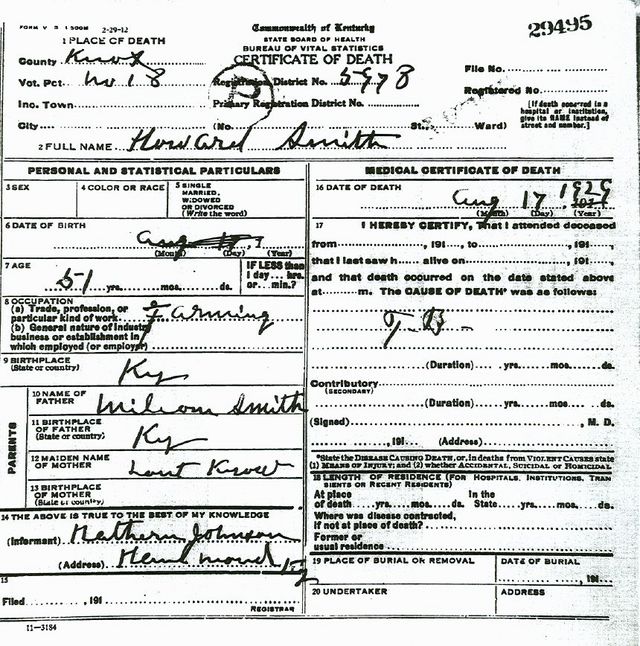 FORM V. S. 1 500M 2-29-12
Commonwealth of Kentucky
29495
STATE BOARD OF HEALTH
BUREAU OF VITAL STATISTICS
CERTIFICATE OF DEATH
1 PLACE OF DEATH
County Knox
File No.
Vot. Pct. No 18 Registration District No. 5978
Registered No.
Inc. Town Primary Registration District No.
City (No. St., Ward)
[If death occurred in a hospital or institution, give its NAME instead of street and number.]
2 FULL NAME Howard Smith
PERSONAL AND STATISTICAL PARTICULARS
3 SEX
4 COLOR OR RACE
5 SINGLE
MARRIED,
WIDOWED
OR DIVORCED
(Write the word)
6 DATE OF BIRTH
Aug
(Month) (Day) (Year)
7 AGE
51 yrs. mos. ds.
IF LESS than
1 day... hrs.
or... min.?
8 OCCUPATION
(a) Trade, profession, or
particular kind of work Farming
(b) General nature of industry
business or establishment in
which employed (or employer)
9 BIRTHPLACE
(State or country) Ky
PARENTS
10 NAME OF
FATHER Smith
11 BIRTHPLACE
OF FATHER
(State or country) Ky
12 MAIDEN NAME
OF MOTHER
13 BIRTHPLACE
OF MOTHER
(State or country)
14 THE ABOVE IS TRUE TO THE BEST OF MY KNOWLEDGE
(Informant) Johnson
(Address) Ky
15
Filed , 191
REGISTRAR
11-3184
MEDICAL CERTIFICATE OF DEATH
16 DATE OF DEATH
Aug 17 1929
(Month) (Day) (Year)
17 I HEREBY CERTIFY, That I attended deceased
from , 191 , to , 191 ,
that I last saw h alive on , 191 ,
and that death occurred on the date stated above
at m. The CAUSE OF DEATH* was as follows:
T. B.
(Duration) yrs. mos. ds.
Contributory
(SECONDARY)
(Duration) yrs. mos. ds.
(Signed) , M. D.
, 191 (Address)
*State the DISEASE CAUSING DEATH, or, in deaths from VIOLENT CAUSES state
(1) MEANS OF INJURY; and (2) whether ACCIDENTAL, SUICIDAL or HOMICIDAL
18 LENGTH OF RESIDENCE (FOR HOSPITALS, INSTITUTIONS, TRAN
SIENTS OR RECENT RESIDENTS)
At place In the
of death yrs. mos. ds. State yrs. mos. ds.
Where was disease contracted,
if not at place of death?
Former or
usual residence
19 PLACE OF BURIAL OR REMOVAL
DATE OF BURIAL
, 191
20 UNDERTAKER
ADDRESS